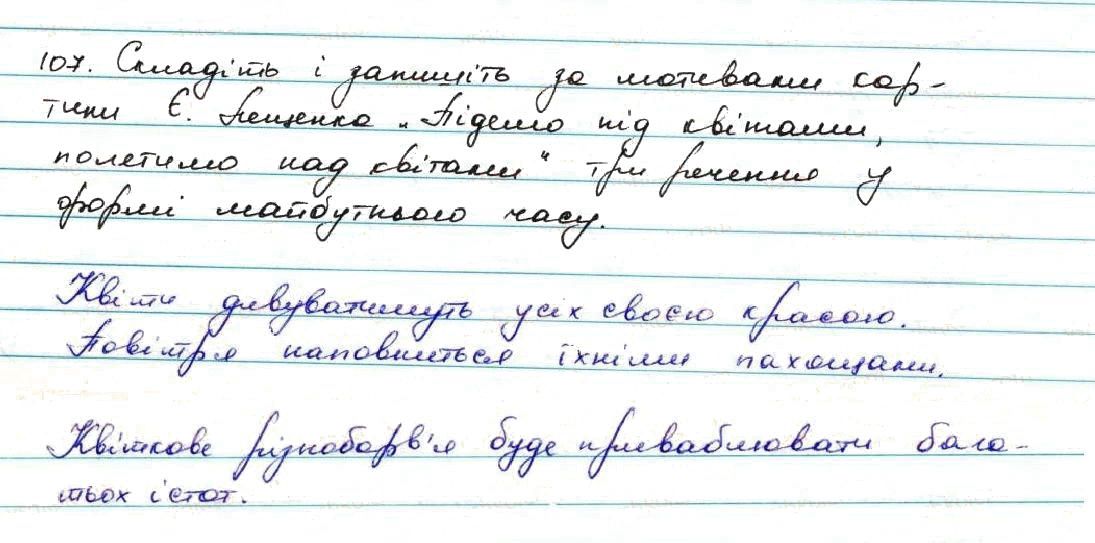 107. Складіть і запишіть за мотивами кар-
тини Є. Лещенко „Підемо під квітами,
полетимо над квітами“ три речення у
формі майбутнього часу.
Квіти дивуватимуть усіх своєю красою.
Повітря наповниться їхніми пахощами.
Квіткове різнобарв'я буде приваблювати бага-
тьох істот.